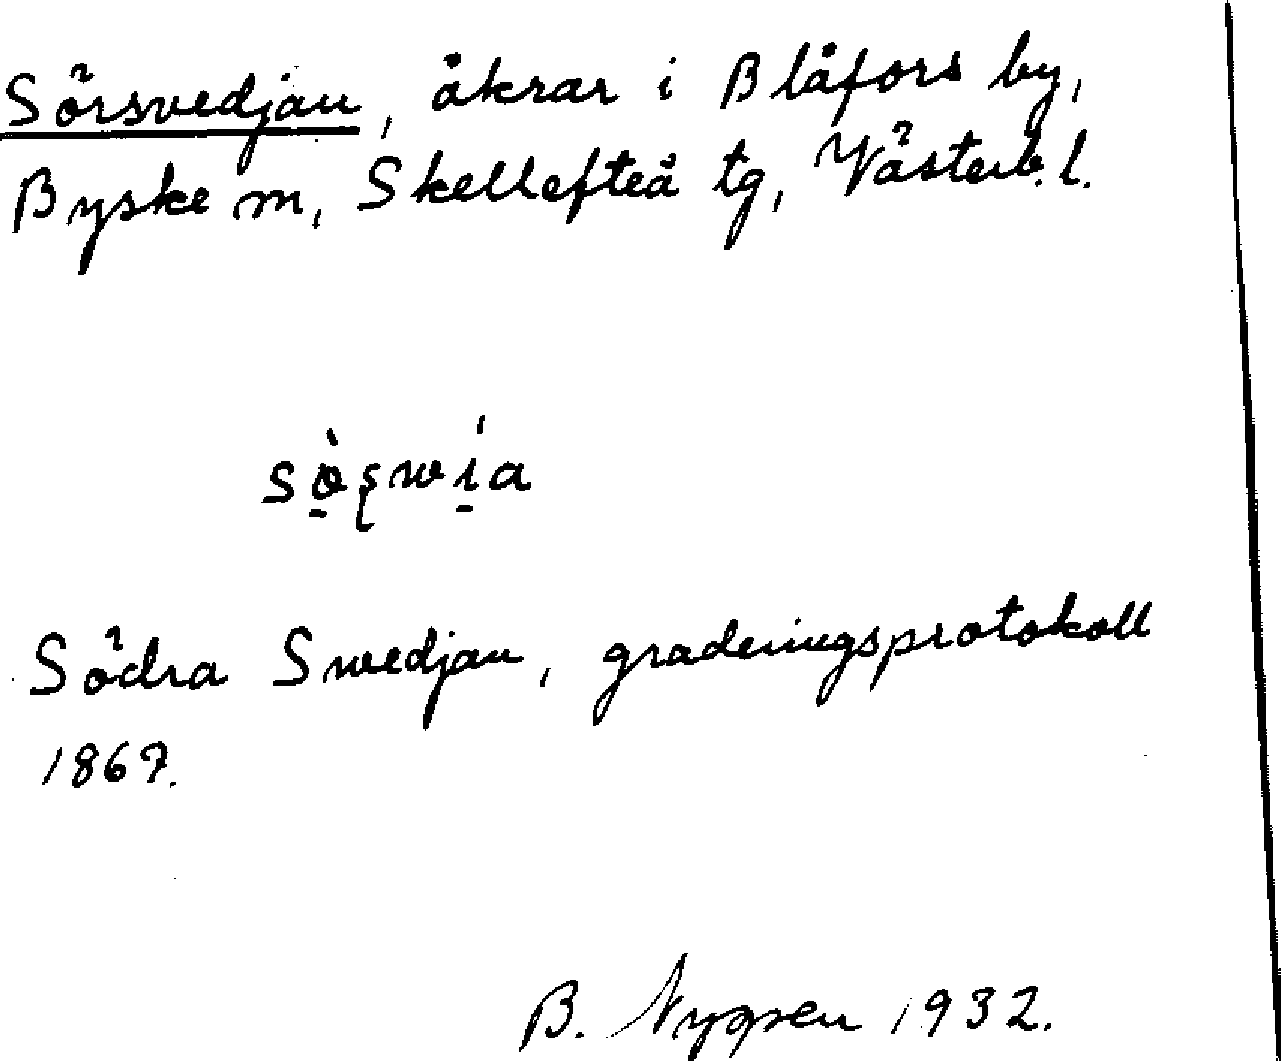 Sörsvedjan, åkrar i Blåfors by,
Byske sn, Skellefteå tg, Västerb. l.
Södra Swedjan, graderingsprotokoll
1867.
B. 1932.